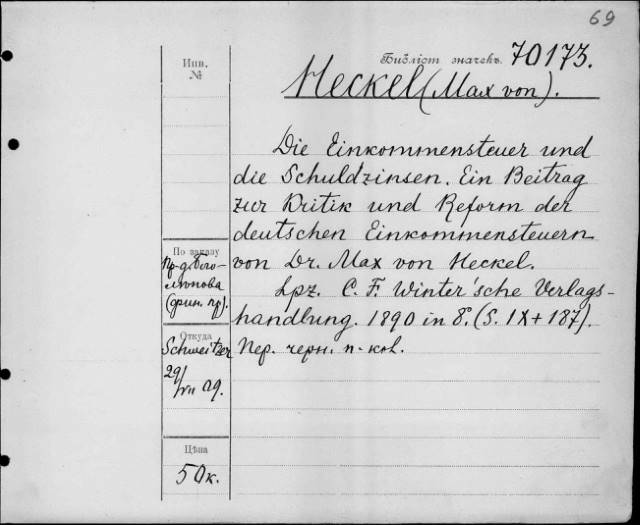 69
Библіот значекъ. 70173.
Инв.
№
Heckel (Max von).
Die Einkommensteuer und
die Schuldzinsen. Ein Beitrag
zur Kritik und Reform der
deutschen Einkommensteuern
von Dr. Max von Heckel.
Lpz. C. F. Winter'sche Verlags-
handlung. 1890 in 8°. (S. IX + 187).
Пер. черн. п.-кол.
По заказу
Пр-д. Бого-
лѣпова
(фин. пр.).
Откуда
Schweitzer
29/VII 09.
Цѣна
50 к.